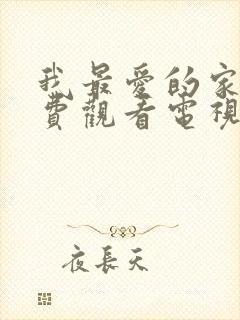 我最愛的家
費觀看電視
夜長天